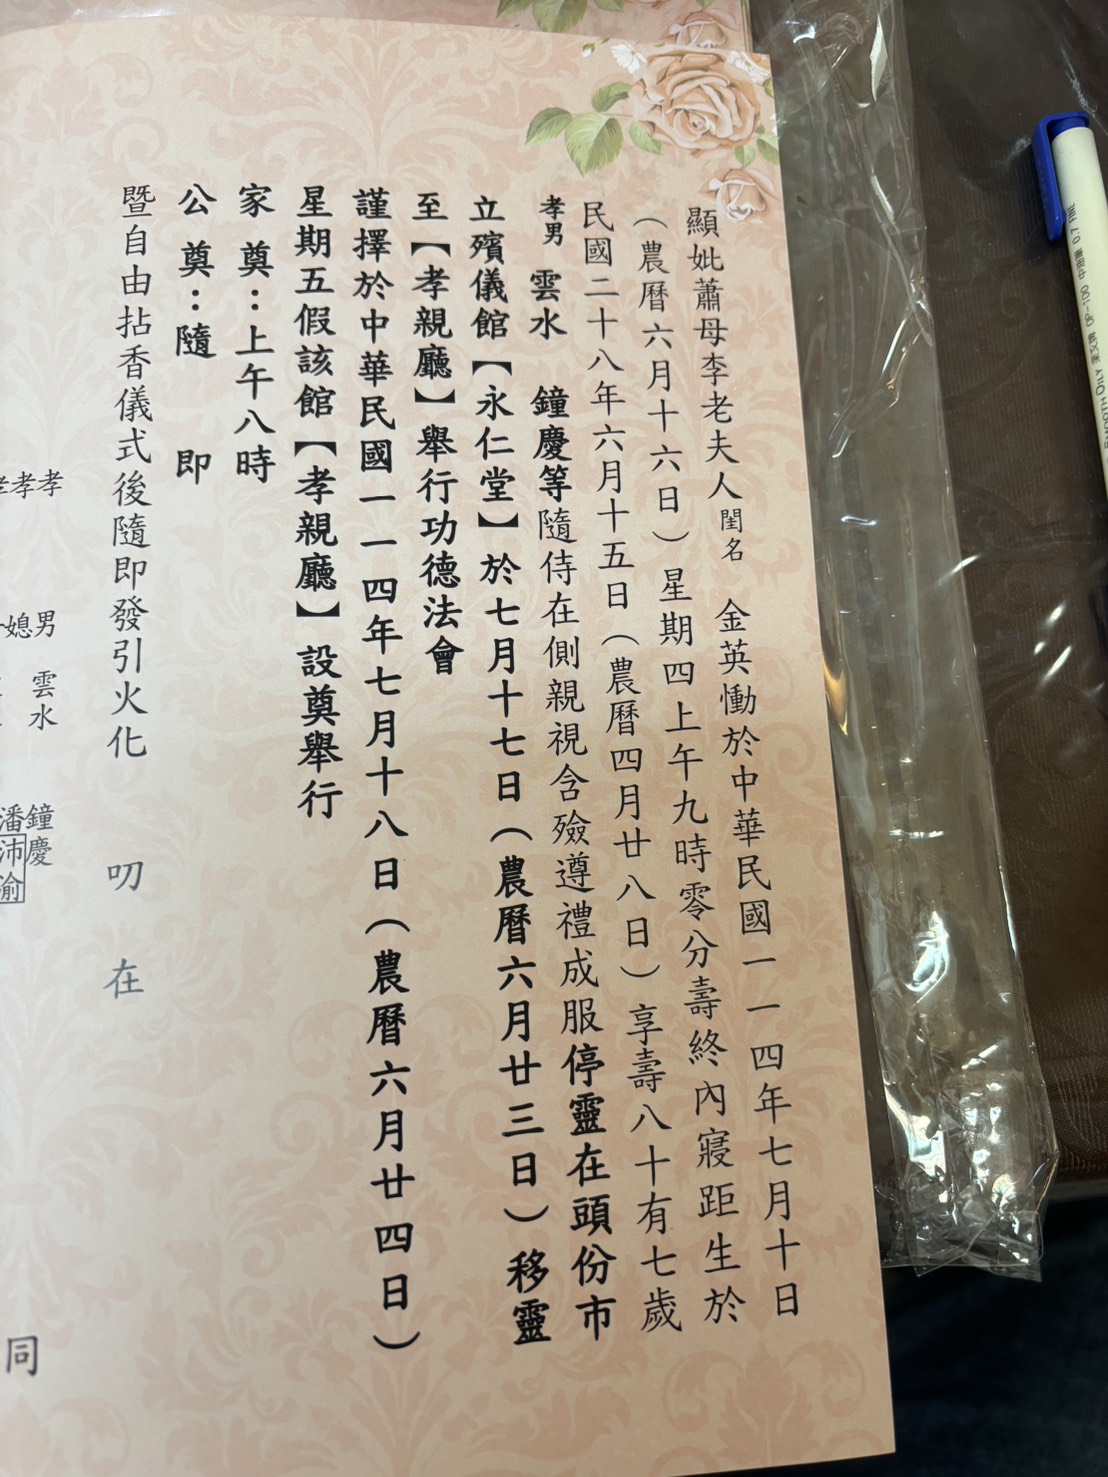 顯妣蕭母李老夫人閨名 金英慟於中華民國一一四年七月十日
（農曆六月十六日）星期四上午九時零分壽終內寢距生於
民國二十八年六月十五日（農曆四月廿八日）享壽八十有七歲
孝男 雲水 鐘慶等隨侍在側親視含殮遵禮成服停靈在頭份市
立殯儀館【永仁堂】於七月十七日（農曆六月廿三日）移靈
至【孝親廳】舉行功德法會
謹擇於中華民國一一四年七月十八日（農曆六月廿四日）
星期五假該館【孝親廳】設奠舉行
家奠：上午八時
公奠：隨 即
暨自由拈香儀式後隨即發引火化 叨 在
孝 男 雲水 鐘慶
孝 媳 潘沛渝
孝
同